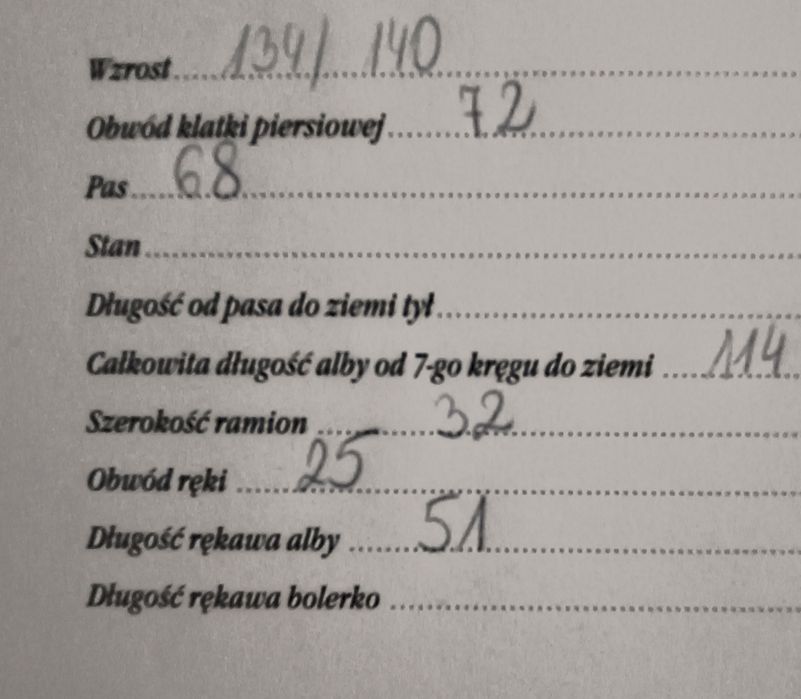 Wzrost 134/ 140
Obwód klatki piersiowej 72
Pas 68
Stan
Długość od pasa do ziemi tył
Całkowita długość alby od 7-go kręgu do ziemi 114
Szerokość ramion 32
Obwód ręki 25
Długość rękawa alby 51
Długość rękawa bolerko